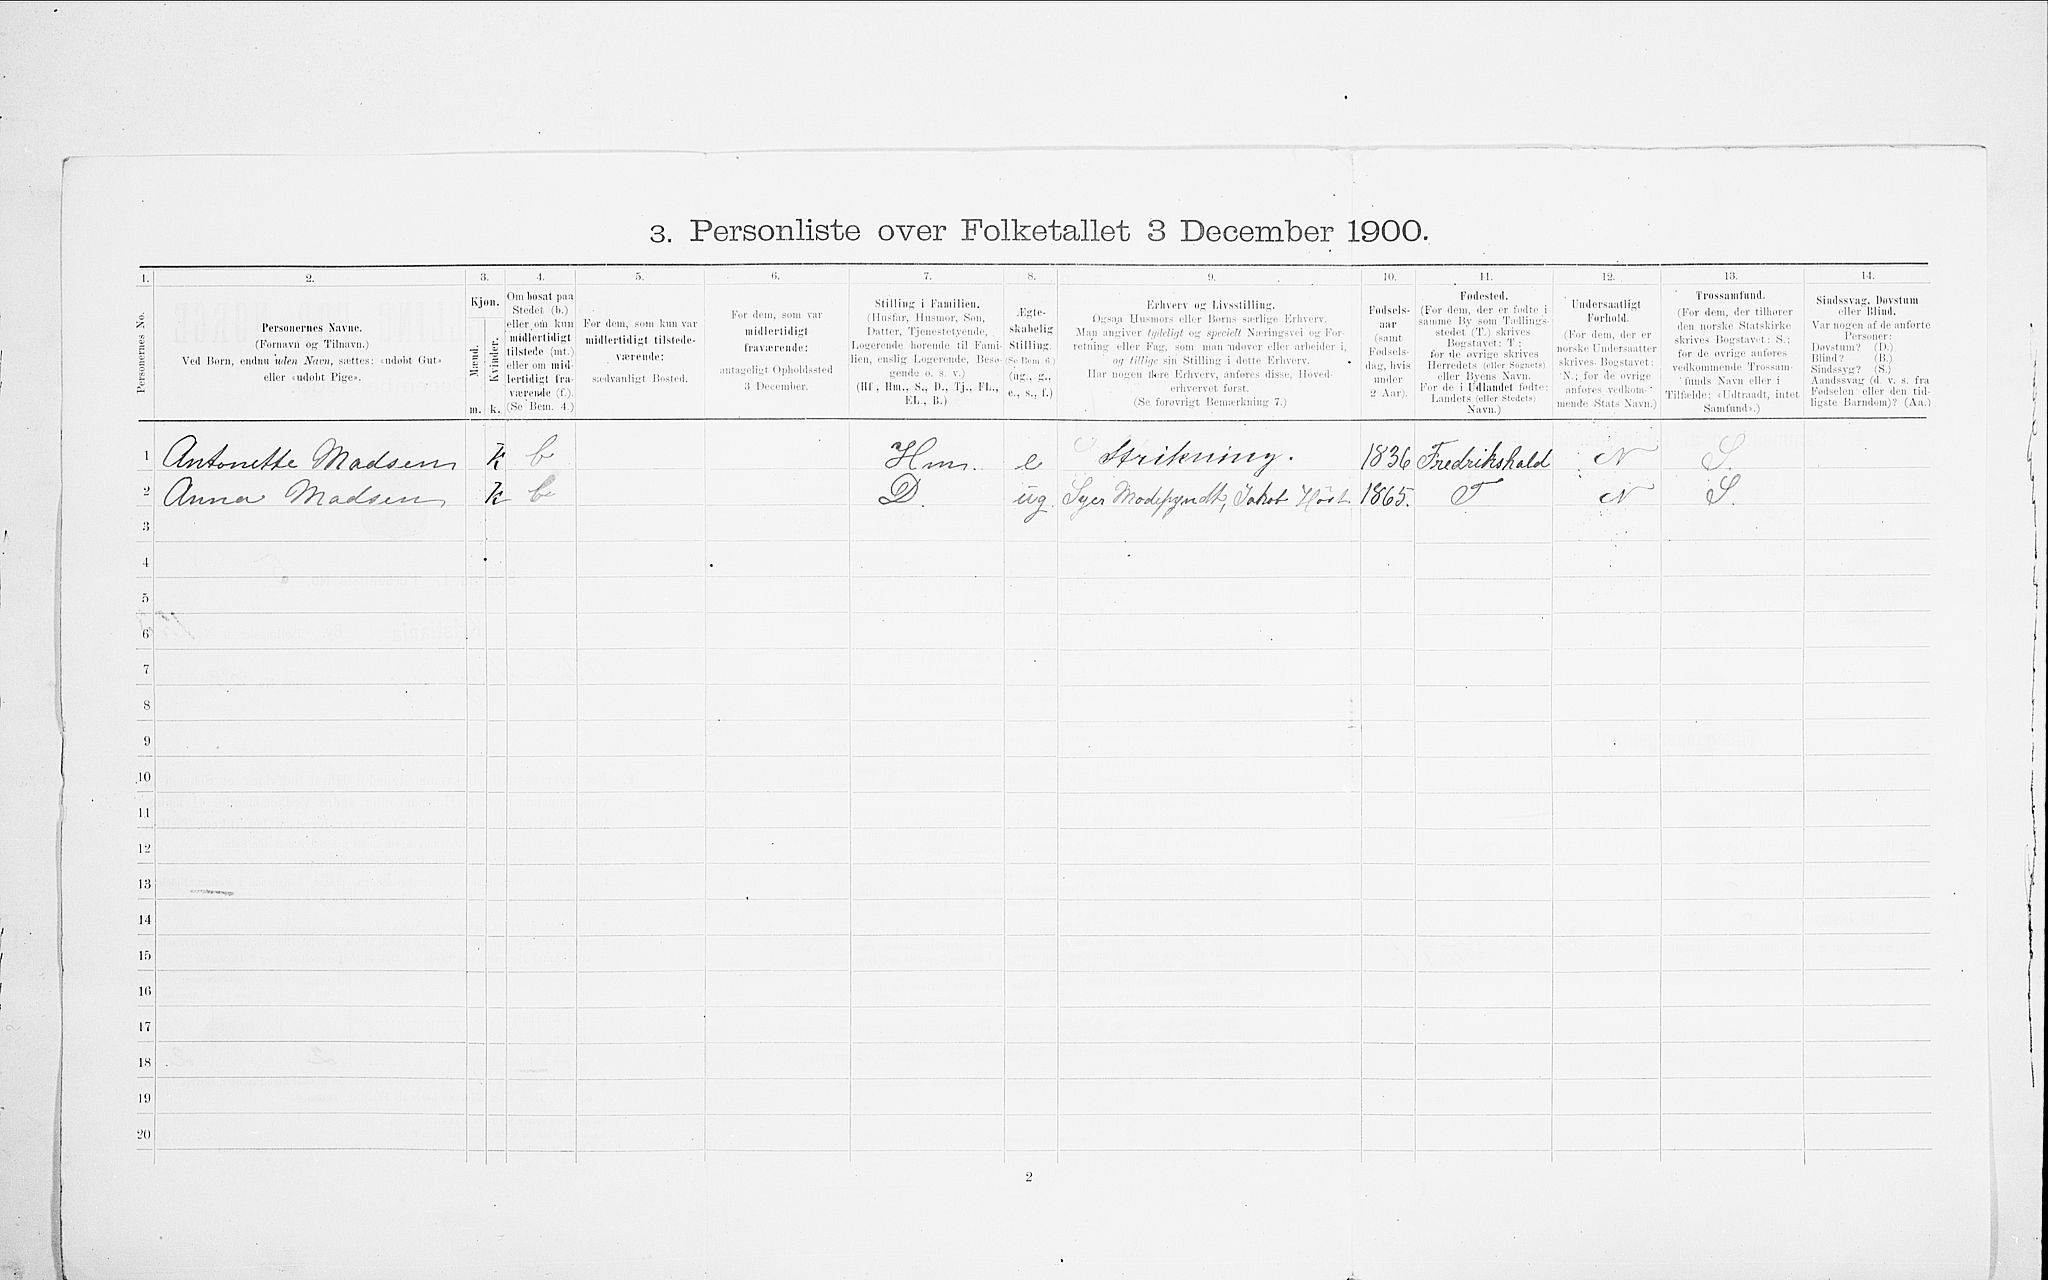 3. Personliste over Folketallet 3 December 1900.
1. 2. 3. 4. 5. 6. 7. 8. 9. 10. 11. 12. 13. 14.
Personernes No.
Personernes Navne.
(Fornavn og Tilnavn.)
Ved Børn, endnu uden Navn, sættes: «udøbt Gut»
eller «udøbt Pige».
Kjøn.
Mænd.
Kvinder.
m. k.
Om bosat paa
Stedet (b.)
eller om kun
midlertidigt
tilstede (mt.)
eller om mid-
lertidigt fra-
værende (f.).
(Se Bem. 4.)
For dem, som kun var
midlertidigt tilstede-
værende:
sædvanligt Bosted.
For dem, som var
midlertidigt
fraværende:
antageligt Opholdssted
3 December.
Stilling i Familien.
(Husfar, Husmor, Søn,
Datter, Tjenestetyende,
Logerende hørende til Fami-
lien, enslig Logerende, Besø-
gende o. s. v.)
(Hf., Hm., S., D., Tj., FL.,
EL., B.)
Ægte-
skabelig
Stilling.
(Se Bem. 6.)
(ug., g.,
e., s., f.)
Erhverv og Livsstilling.
Ogsaa Husmors eller Børns særlige Erhverv.
Man angiver tydeligt og specielt Næringsvei og For-
retning eller Fag, som man udøver eller arbeider i,
og tillige sin Stilling i dette Erhverv.
Har nogen flere Erhverv, anføres disse, Hoved-
erhvervet først.
(Se forøvrigt Bemærkning 7.)
Fødsels-
aar
(samt
Fødsels-
dag, hvis
under
2 Aar).
Fødested.
(For dem, der er fødte i
samme By som Tællings-
stedet (T.) skrives
Bogstavet: T.;
for de øvrige skrives
Herredets (eller Sognets)
eller Byens Navn.
For de i Udlandet fødte:
Landets (eller Stedets)
Navn.)
Undersaatligt
Forhold.
(For dem, der er
norske Undersaatter
skrives Bogstavet:
N.; for de øvrige
anføres vedkom-
mende Stats Navn.)
Trossamfund.
(For dem, der tilhører
den norske Statskirke
skrives Bogstavet: S.;
for de øvrige anføres
vedkommende Trossam-
funds Navn eller i
Tilfælde: «Udtraadt, intet
Samfund».)
Sindssvag, Døvstum
eller Blind.
Var nogen af de anførte
Personer:
Døvstum? (D.)
Blind? (B.)
Sindssyg? (S.)
Aandssvag (d. v. s. fra
Fødselen eller den tid-
ligste Barndom)? (Aa.)
1 Antonette Madsen k b Hm. e Strikning. 1836 Fredrikshald N S.
2 Anna Madsen k b D. ug. Syer Modepyndt, Jakob Høst 1865. T N S.
3
4
5
6
7
8
9
10
11
12
13
14
15
16
17
18
19
20
2